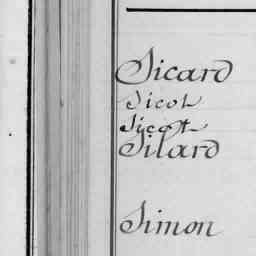 Sicard
Sicot
Sicot
Silard
Simon